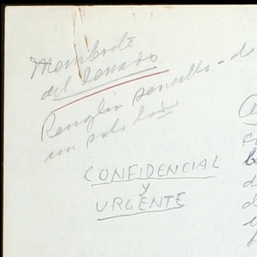 Membrete
del Senado
Renglón sencillo - do
un solo lado
CONFIDENCIAL
y
URGENTE